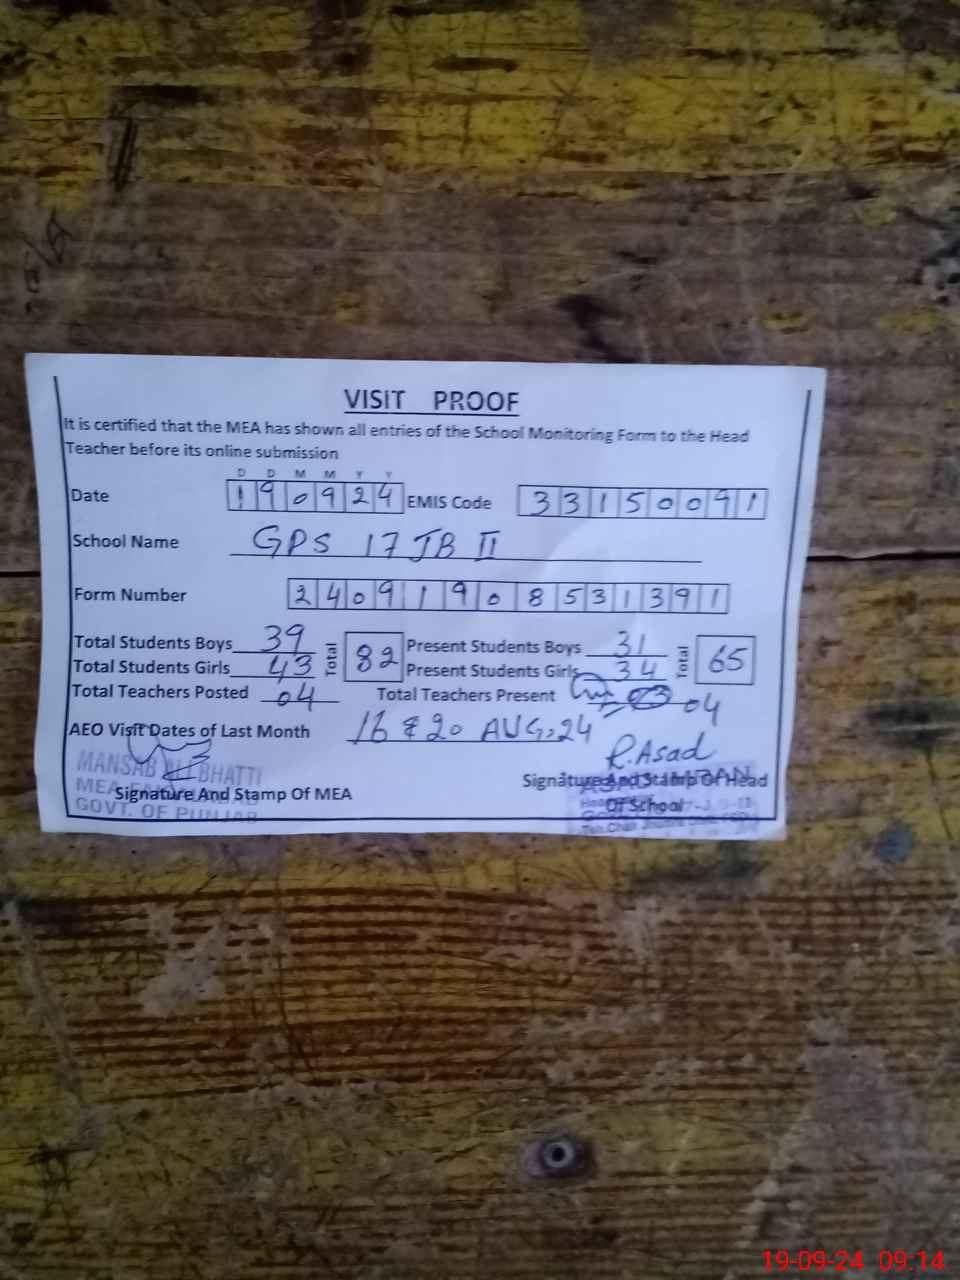 VISIT PROOF
It is certified that the MEA has shown all entries of the School Monitoring Form to the Head
Teacher before its online submission
D D M M Y Y
Date 190924 EMIS Code 33150091
School Name GPS 17 JB II
Form Number 24091908531391
Total Students Boys 39 Total 82 Present Students Boys 31 Total 65
Total Students Girls 43 Present Students Girls 34
Total Teachers Posted 04 Total Teachers Present 03 04
AEO Visit Dates of Last Month 16 & 20 AUG,24
R.Asad
MANSAB ALI BHATTI
MEA
GOVT. OF PUNJAB
Signature And Stamp Of MEA
Signature And Stamp Of Head
Of School
19-09-24 09:14